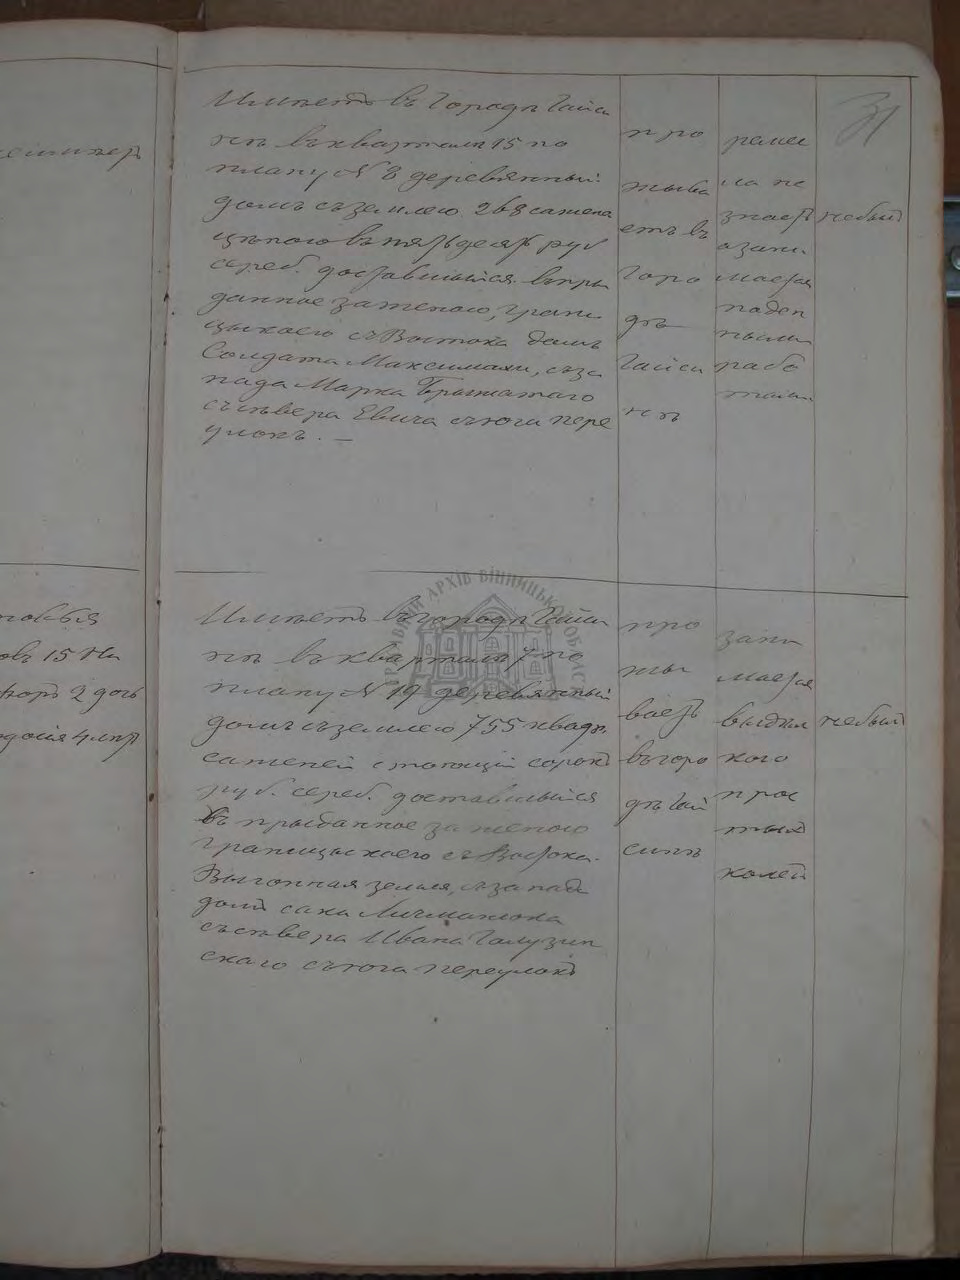 31
Имѣетъ въ Городѣ Гайси
нѣ въ кварталѣ 15 по
плану № 8 деревянный
домъ съ землею 268 сажен
цѣною въ пятьдесятъ руб
сереб. доставшійся въ при
данное за женою, грани
цы коего съ Востока домъ
Солдата Максимахи, съ за
пада Марка
съ сѣвера съ юга пере
улокъ. —
про
жыва
етъ въ
Горо
дѣ
Гайси
нѣ
ремес
ла не
знаетъ
а зани
мается
поден
ными
рабо
тами
небылъ
Имѣетъ въ городѣ Гайси
нѣ въ кварталѣ 7 по
плану № 19 деревянный
домъ съ землею 755 квадр.
саженей стоющій сорокъ
руб. сереб. доставшійся
въ приданное за женою
границы коего съ Востока
Выгонная земля, съ запада
домъ
съ сѣвера Ивана Галузин
скаго съ юга переулокъ
про
жы
ваетъ
въ горо
дѣ Гай
синѣ
зани
мается
выдѣл
кого
прос
тыхъ
кожей
небылъ
овъ 15 На
2 дочь
ДЕРЖАВНИЙ АРХІВ ВІННИЦЬКОЇ ОБЛАСТІ